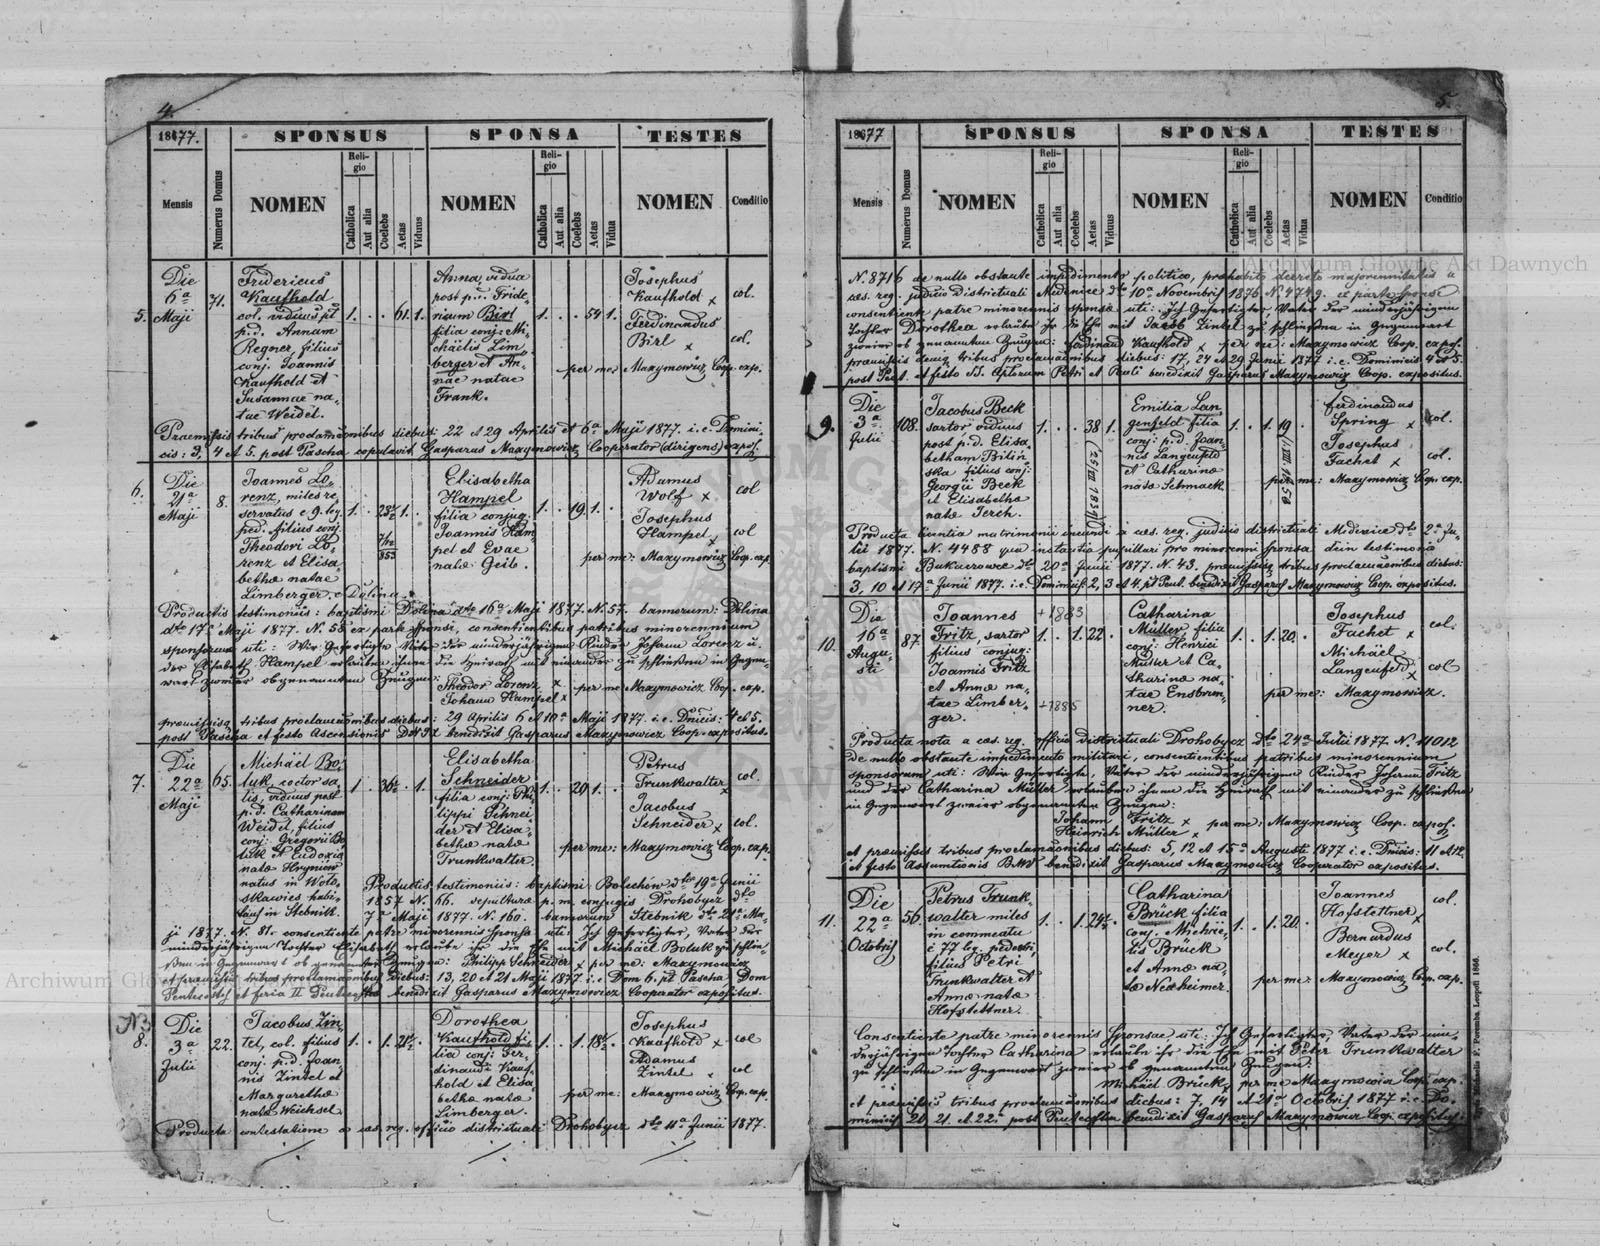 4.
1877.
SPONSUS
SPONSA
TESTES
Mensis
Numerus Domus
NOMEN
Religio
Catholica
Aut alia
Coelebs
Aetas
Viduus
NOMEN
Religio
Catholica
Aut alia
Coelebs
Aetas
Vidua
NOMEN
Conditio
5.
Die
6a
Maji
71.
Fridericus
Kaufhold
col. viduus pt
p.d. Annam
Regner filius
conj. Joannis
Kaufhold et
Susannae na-
tae Weidel.
1. . . 61. 1.
Anna, vidua
post p.d. Fride-
ricum Birl
filia conj: Mi-
chäelis Lim-
berger et An-
nae natae
Frank.
1. . . 54 1.
Josephus
Kaufhold x
col.
Ferdinandus
Birl x
col.
per me: Maxymowicz Coop. exp.
Praemissis tribus proclamaonibus diebus: 22 et 29 Aprilis et 6a Maji 1877. i.e. Domini-
cis: 3, 4 et 5. post Pascha copulavit Gasparus Maxymowicz Cooperator (dirigens) expos.
6.
Die
21a
Maji
8.
Joannes Lo-
renz, miles re-
servatus c 9. leg.
ped. filius conj.
Theodori Lo-
renz et Elisa-
bethae natae
Limberger. e Dolina.
Elisabetha
Hampel
filia conjug.
Joannis Ham-
pel et Evae
natae Geib.
1. . 19. 1.
Adamus
Wolf x
col
Josephus
Hampel x
col
per me: Maxymowicz Coop. exp.
Productis testimoniis: baptismi Dolina dto 16a Maji 1877. N. 57. bannorum: Dolina
dto 17a Maji 1877. N. 58 ex parte sponsi, consentientibus patribus minorennium
sponsorum uti: Wir Gefertigte Väter der minderjährigen Kinder Johann Lorenz u.
der Elisabeth Hampel erlauben ihnen die Heirat mit einander zu schließen in Gegen-
wart zweier obgenannten Zeugen: Theodor Lorenz x
Johann Hampel x
per me Maxymowicz Coop. exp.
praemissisq. tribus proclamaonibus diebus: 29 Aprilis 6 et 10a Maji 1877. i.e. Dnicis: 4 et 5.
post Pascha et festo Ascensionis benedixit Gasparus Maxymowicz Coop. expositus.
7.
Die
22a
Maji
65.
Michäel Bo-
luk, coctor sa-
lis, viduus post
p.d. Catharinam
Weidel, filius
conj: Gregorii Bo-
luk et Eudoxia
natae Hryniow
natus in Woło-
skawies habi-
tans in Stebnik.
Elisabetha
Schneider
filia conj: Phi-
lippi Schnei-
der et Elisa-
bethae natae
Trunkwalter.
1. . 20 1.
Petrus
Trunkwalter x
col.
Jacobus
Schneider x
col.
per me: Maxymowicz Coop. exp.
Productis testimoniis: baptismi Bolechów dto 19a Junii
1857 N. 66. sepulturae p.m. conjugis Drohobycz dto
7a Maji 1877. N. 160. bannorum Stebnik dto 21a Ma-
ji 1877. N. 81. consentiente patre minorennis sponsae uti: Ich Gefertigter, Vater der
minderjährigen Tochter Elisabeth erlaube ihr die Ehe mit Michäel Boluk zu schlie-
ßen in Gegenwart ob genannter Zeugen: Philipp Schneider x per me: Maxymowicz
et praemissis tribus proclamaonibus diebus: 13, 20 et 21 Maji 1877 i.e. Dom 6. pt Pascha, Dom
Pentecostes et feria II Pentecostes benedixit Gasparus Maxymowicz Cooperator expositus.
8.
Die
3a
Julii
22.
Jacobus Zin-
tel, col. filius
conj. p.d. Joan-
nis Zintel et
Margarethae
natae Weichsel.
Dorothea
Kaufhold fi-
lia conj: Fer-
dinandi Kauf-
hold et Elisa-
bethae natae
Limberger.
Josephus
Kaufhold x
col
Adamus
Zintel x
col
per me: Maxymowicz Coop. exp.
Producta contestatione a caes. reg. officio districtuali Drohobycz dto 11a Junii 1877.
5.
1877
SPONSUS
SPONSA
TESTES
Mensis
Numerus Domus
NOMEN
Religio
Catholica
Aut alia
Coelebs
Aetas
Viduus
NOMEN
Religio
Catholica
Aut alia
Coelebs
Aetas
Vidua
NOMEN
Conditio
N. 8716 de nullo obstante impedimento politico, prohabito decreto majorennitatis a
caes. reg. judicio Districtuali Medenice dto 10a Novembris 1876 N. 4749. et parte sponsae
consentiente patre minorennis sponsae uti: Ich Gefertigter, Vater der minderjährigen
Tochter Dorothea erlaube ihr die Ehe mit Jacob Zintel zu schließen in Gegenwart
zweier ob genannten Zeugen: Ferdinand Kaufhold x per me: Maxymowicz Coop. expos.
praemissis deniq. tribus proclamaonibus diebus: 17, 24 et 29 Junii 1877 i.e. Dominicis 4 et 5.
post Pent. et festo SS. Aplorum Petri et Pauli benedixit Gasparus Maxymowicz Coop. expositus.
9.
Die
3a
Julii
108.
Jacobus Beck
sartor viduus
post p.d. Elisa-
betham Bilin-
ska filius conj:
Georgii Beck
et Elisabethae
natae Zerch.
1. . . 38 1.
Emilia Lan-
genfeld filia
conj: p.d. Joan-
nis Langenfeld
et Catharinae
natae Schmack.
1. . 1. 19
Ferdinandus
Spring x
col.
Josephus
Fachet x
col.
per me: Maxymowicz Coop. exp.
Producta licentia matrimonii ineundi a caes. reg. judicio districtuali Medenice dto 2a Ju-
lii 1877. N. 4488 qua instantia pupillari pro minorenni sponsa dein testimonio
baptismi Bukaczowce dto 20a Junii 1877. N. 43. praemissisq tribus proclamaonibus diebus:
3, 10 et 17a Junii 1877. i.e. Dominicis 2, 3 et 4. pt Pent. benedixit Gasparus Maxymowicz Coop. expositus.
10.
Die
16a
Augu-
sti
87.
Joannes
+1883
Fritz, sartor
filius conjug:
Joannis Fritz
et Annae na-
tae Limber-
ger.
+1885
1. . 1. 22.
Catharina
Müller filia
conj: Henrici
Müller et Ca-
tharinae na-
tae Ensbrun-
ner.
1. . 1. 20.
Josephus
Fachet x
col.
Michäel
Langenfeld x
col
per me: Maxymowicz.
Producta nota a caes. reg. officio districtuali Drohobycz dto 24a Julii 1877. N. 11012
de nullo obstante impedimento militari, consentientibus patribus minorennium
sponsorum uti: Wir Gefertigte, Väter der minderjährigen Kinder Johann Fritz
und der Catharina Müller erlauben ihnen die Heirath mit einander zu schließen
in Gegenwart zweier obgenannten Zeugen:
Johann Fritz x
Heinrich Müller x
per me: Maxymowicz Coop. expos.
et praemissis tribus proclamaonibus diebus: 5, 12 et 15a Augusti 1877 i.e. Dnicis: 11 et 12.
et festo Assumtionis BMV benedixit Gasparus Maxymowicz Cooperator expositus.
11.
Die
22a
Octobris
56.
Petrus Trunk-
walter miles
in commeatu
c 77 leg. pedestri
filius Petri
Trunkwalter et
Annae natae
Hofstettner.
Catharina
Brück filia
conj. Michäe-
lis Brück
et Annae na-
tae Neüheimer.
1. . 1. 20.
Joannes
Hofstettner x
col.
Bernardus
Meyer x
col.
per me: Maxymowicz Coop. exp.
Consentiente patre minorennis Sponsae, uti: Ich Gefertigter, Vater der min-
derjährigen Tochter Catharina erlaube ihr die Ehe mit Peter Trunkwalter
zu schließen in Gegenwart zweier ob genannten Zeugen:
Michäel Brück x per me Maxymowicz Coop. exp.
et praemissis tribus proclamaonibus diebus: 7, 14 et 21a Octobris 1877 i.e. Do-
minicis 20, 21. et 22a post Pentecosten benedixit Gasparus Maxymowicz Coop: expositus.
Archiwum Główne Akt Dawnych